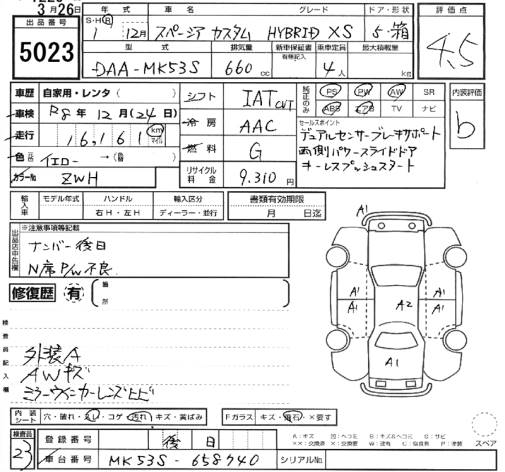 3月26日
出品番号 5023
年 車名 グレード ドア・形状 評価点
S・H・R 1 12月 スペーシア カスタム HYBRID XS 5・箱 4.5
型式 排気量 新車保証書 有無記入 乗車定員 最大積載量
DAA-MK53S 660cc 4人 kg
車歴 自家用・レンタ( ) シフト IAT CVT 純正のみ PS PW AW SR 内装評価
車検 R8年12月(24日) ABS エアB TV ナビ b
走行 16,161 km マイル 冷房 AAC セールスポイント
デュアルセンサーブレーキサポート
色 イエロー→( ) 燃料 G 両側パワースライドドア
カラーNo. ZWH リサイクル料金 9.310円 キーレスプッシュスタート
輸入車 モデル年式 ハンドル 輸入区分 書類有効期限
年 右H・左H ディーラー・並行 月 日迄
出品店申告欄 ※注意事項等記載
ナンバー後日
N席P/W不良
修復歴 有 箇所
検査員記入欄
外装A
AWキズ
ミラーウインカーレンズヒビ
A1
A1 A1 A2 A1 A1
A1
内装シート 穴・破れ・スレ・コゲ 汚れ・キズ・黄ばみ Fガラス キズ・飛石・×要す
スペア
検査員 23 登録番号 後日
車台番号 MK53S-658740 シリアルNo.